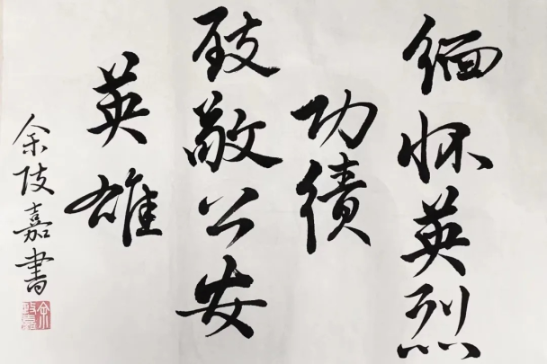 缅怀英烈
功绩
致敬公安
英雄
余陂嘉書